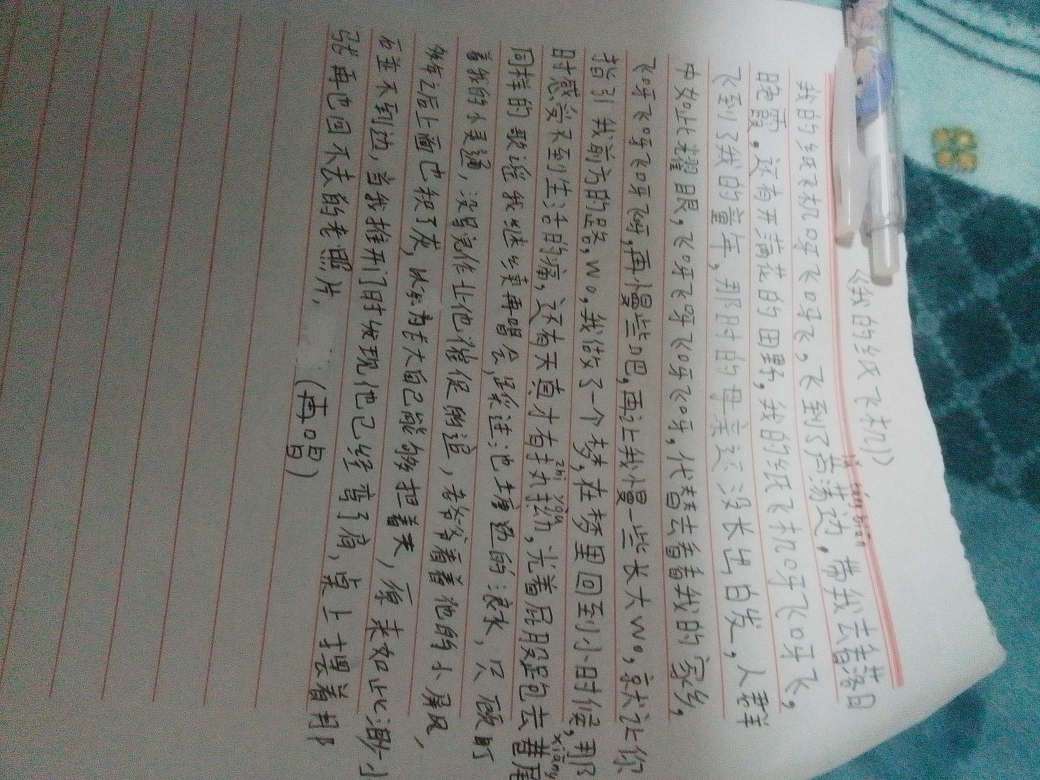 《我的纸飞机》
我的纸飞机呀飞呀飞，飞到了芦荡边，带我去看落日
晚霞。还有开满花的田野，我的纸飞机呀飞呀飞，
飞到了我的童年，那时的母亲还没长出白发，人群
中如此耀眼，飞呀飞呀飞呀飞呀，代替去看看我的家乡，
飞呀飞呀飞呀飞啊，再慢些吧，再让我慢一些长大wo，就让你
指引我前方的路，wo，我做了一个梦，在梦里回到小时候，那
zhi you xiang
时感觉不到生活的痛，还有天真才有，光着屁股跑包去巷尾
同样的歌谣我继续再唱会，踩进池塘的滚水，只顾盯
着我的小，没让他催促的，着他的小屏风，
之后上面也积了灰，大自己能够把着天，原来如此渺小
当我推开门时发现他已经弯了肩，桌上摆着那
张再也回不去的老照片，
（再唱）